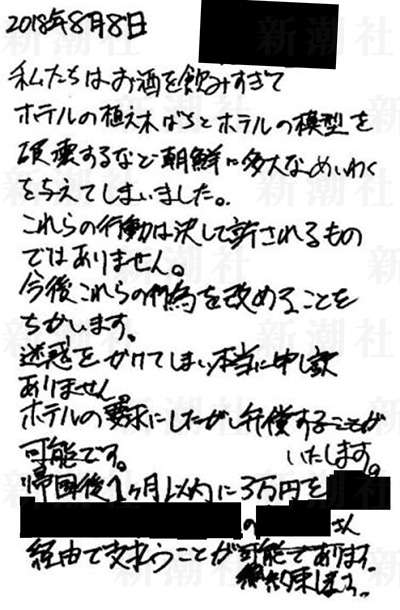 2018年8月8日
私たちはお酒を飲みすぎて
ホテルの植木ばちとホテルの模型を
破壊するなど朝鮮に多大なめいわく
を与えてしまいました。
これらの行動は決して許されるもの
ではありません。
今後これらの行為を改めることを
ちかいます。
迷惑をかけてしまい本当に申し訳
ありません
ホテルの要求にしたがい弁償することが
可能です。 いたします。
帰国後1ヶ月以内に3万円を
の さん
経由で支払うことが可能であります。
約束します。
新潮社